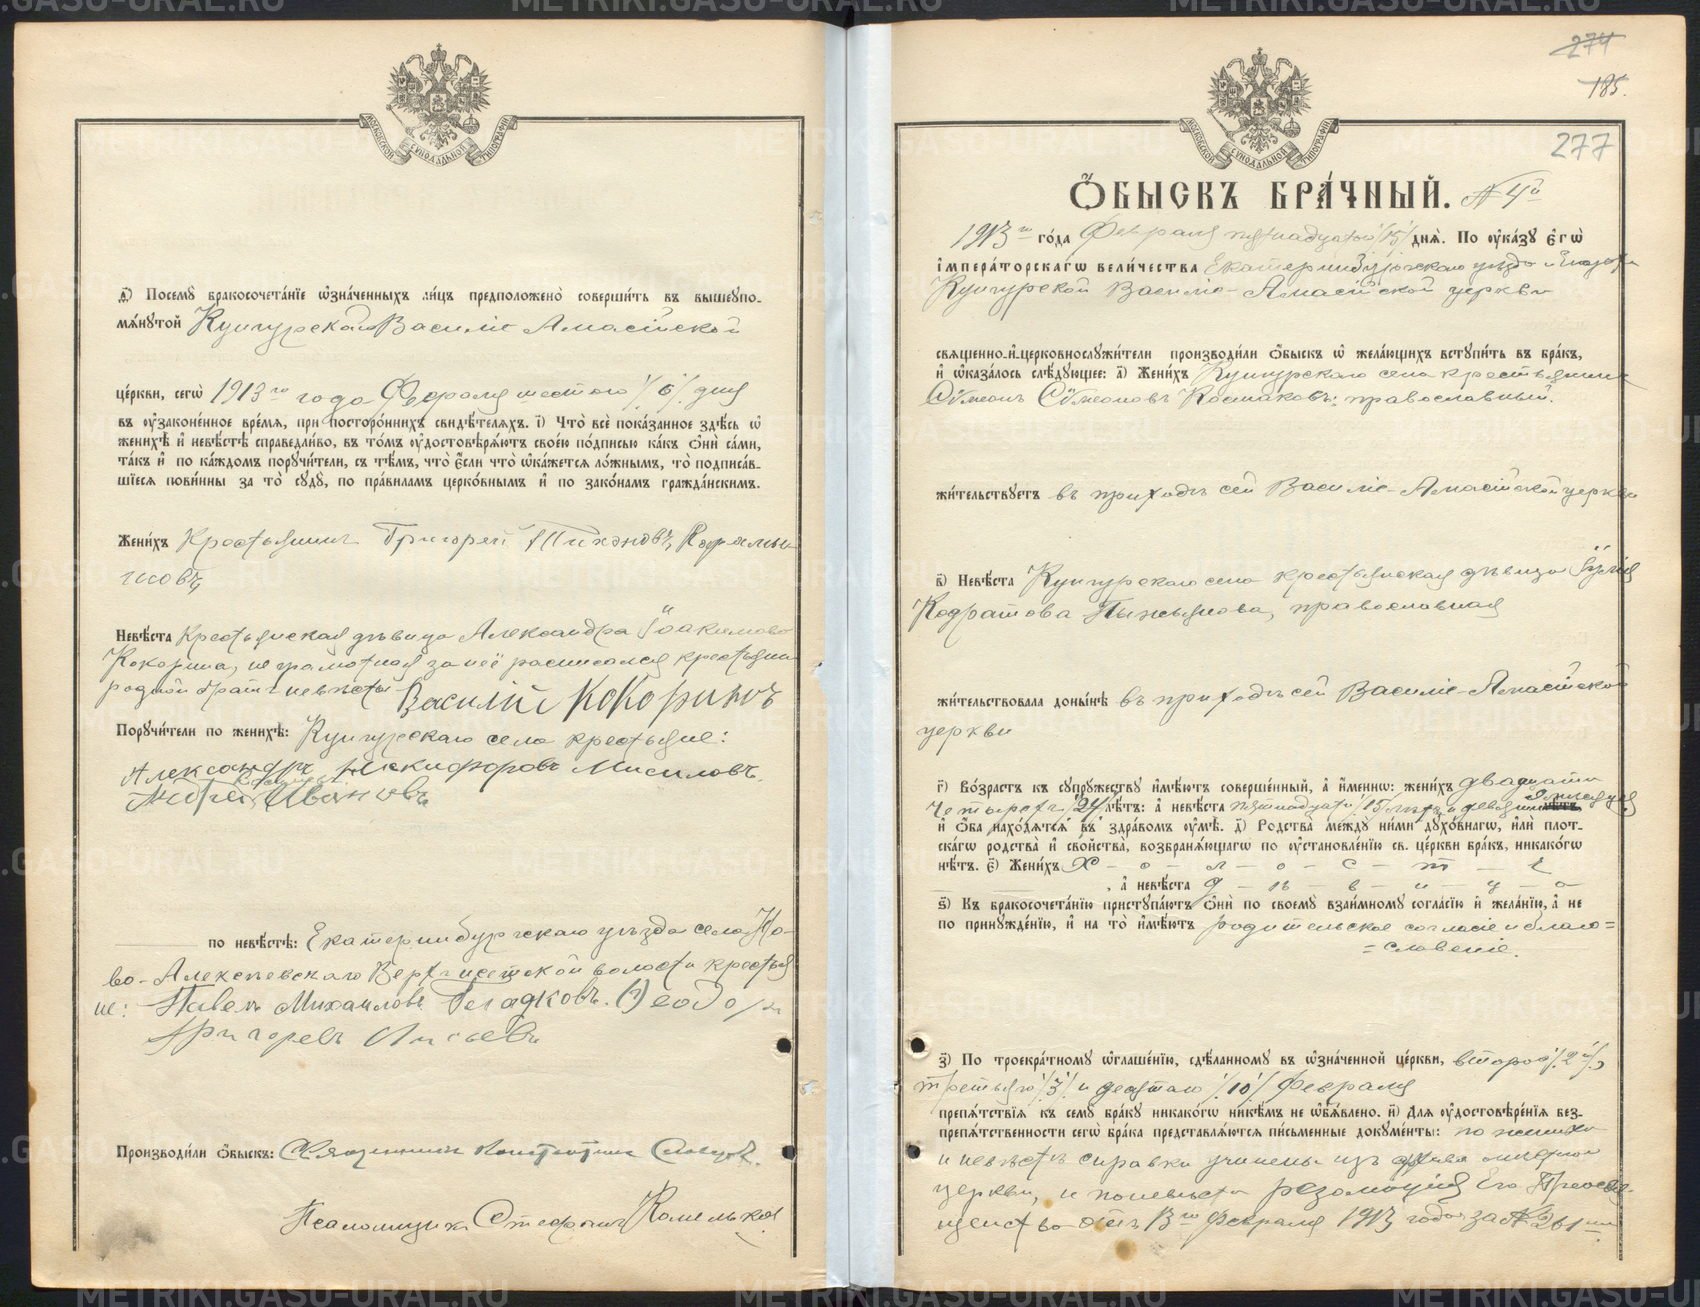 МОСКОВСКОЙ СѴНОДАЛЬНОЙ ТИПОГРАФІИ
ѳ҃) Посемꙋ̀ бракосочета́нїе ѡ҆зна́ченныхъ ли́цъ предположено̀ соверши́ть въ вышеупо-
мѧ́нутой Кунгурской Василіе-Амасійской
це́ркви, сегѡ̀ 1913го года Февраля шестого /6/ дня
въ ᲂу҆зако́ненное вре́мѧ, при посторо́ннихъ свидѣ́телѧхъ. і҃) Что̀ всѐ пока́занное здѣ́сь ѡ҆
женихѣ̀ и҆ невѣ́стѣ справедли́во, въ то́мъ ᲂу҆достовѣрѧ́ютъ свое́ю по́дписью ка́къ ѻ҆нѝ са́ми,
та́къ и҆ по ка́ждомъ порꙋчи́тели, съ тѣ́мъ, что̀ є҆́сли что̀ ѡ҆ка́жетсѧ ло́жнымъ, то̀ подписа́в-
шїесѧ пови́нны за то̀ сꙋдꙋ̀, по пра́виламъ церко́внымъ и҆ по зако́намъ гражда́нскимъ.
Жени́хъ Крестьянинъ Григорей Тихоновъ Карамы-
шовъ
Невѣ́ста Крестьянская дѣвица Александра Іоакимова
Кокорина, не грамотная за неё расписался крестьянин
родной братъ невѣсты Василій Кокоринъ
Порꙋчи́тели по женихѣ̀: Кунгурскаго села крестьяне:
Александръ Никифоровъ Мисиловъ
Андрей Ивановъ
по невѣ́стѣ: Екатеринбургскаго уѣзда села Но-
во-Алексѣевскаго Верх-исетской волости крестья
не: Павелъ Михайловъ Гладковъ. Ѳеодоръ
Григорьевъ Лисьевъ
Производи́ли ѻ҆́быскъ: Священникъ Константинъ Словцовъ.
Псаломщикъ Стефанъ Комельков
274
185.
277
МОСКОВСКОЙ СѴНОДАЛЬНОЙ ТИПОГРАФІИ
Ѻ҆́БЫСКЪ БРА́ЧНЫЙ. №4й
1913го го́да Февраля пятнадцатаго /15/ днѧ̀. По ᲂу҆ка́зꙋ є҆гѡ̀
і҆мпера́торскагѡ вели́чества Екатеринбургскаго уѣзда и Епархіи
Кунгурской Василіе-Амасійской церкви
свѧще́нно-и҆-церковнослꙋжи́тели производи́ли ѻ҆́быскъ ѡ҆ жела́ющихъ встꙋпи́ть въ бра́къ,
и҆ ѡ҆каза́лось слѣ́дующее: а҃) Жени́хъ Кунгурскаго села крестьянинъ
Сѵмеонъ Сѵмеоновъ Костаковъ: православный.
жи́тельствꙋетъ въ приходѣ сей Василіе-Амасійской церкви
в҃) Невѣ́ста Кунгурскаго села крестьянская дѣвица Іулія
Кодратова Пыньянова, православная
жи́тельствовала доны́нѣ въ приходѣ сей Василіе-Амасійской
церкви
г҃) Во́зрастъ къ сꙋпрꙋ́жествꙋ и҆мѣ́ютъ соверше́нный, а҆ и҆́менно: жени́хъ двадцати
четырехъ /24/ лѣ́тъ: а҆ невѣ́ста пятнадцати /15/ лѣтъ и девяти мѣсяцевъ
и҆ ѻ҆́ба нахо́дѧтсѧ въ здра́вомъ ᲂу҆мѣ̀. д҃) Родства̀ междꙋ̀ ни́ми дꙋхо́внагѡ, и҆лѝ плот-
ска́гѡ родства̀ и҆ сво́йства, возбранѧ́ющагѡ по ᲂу҆становле́нїю св. це́ркви бра́къ, никако́гѡ
нѣ́тъ. є҃) Жени́хъ Х - о - л - о - с - т - ъ
, а҆ невѣ́ста д - ѣ - в - и - ц - а
ѕ҃) Къ бракосочета́нїю пристꙋпа́ютъ ѻ҆нѝ по своемꙋ̀ взаи́мномꙋ согла́сїю и҆ жела́нїю, а҆ не
по принꙋжде́нїю, и҆ на то̀ и҆мѣ́ютъ родительское согласіе и благо=
=словеніе.
з҃) По троекра́тномꙋ ѡ҆глаше́нїю, сдѣ́ланномꙋ въ ѡ҆зна́ченной це́ркви, второго /2го/,
третьяго /3/ и десятаго /10/ Февраля
препѧ́тствїѧ къ семꙋ̀ бра́кꙋ никако́гѡ никѣ́мъ не ѡ҆б̾ѧ́влено. и҃) Для ᲂу҆достовѣре́нїѧ без-
препѧ́тственности сегѡ̀ бра́ка представлѧ́ютсѧ пи́сьменные докꙋме́нты: по жениху
и невѣстѣ справки учинены изъ архива мѣстной
церкви, и по невѣстѣ резолюція Его Преосвя-
щенства отъ 13го Февраля 1913 года за №